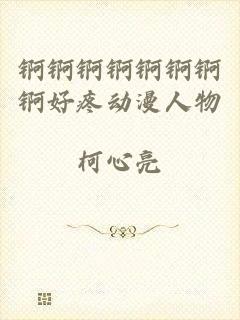 锕锕锕锕锕锕锕
锕好疼动漫人物
柯心亮